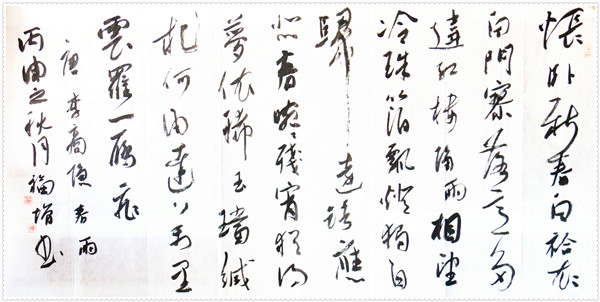 悵卧新春白袷衣
白門寥落意多
違紅樓隔雨相望
冷珠箔飄燈獨自
歸遠路應
悲春晼晚殘宵猶得
夢依稀玉璫緘
札何由達万里
雲羅一雁飛
唐李商隐春雨
丙申之秋月福增书